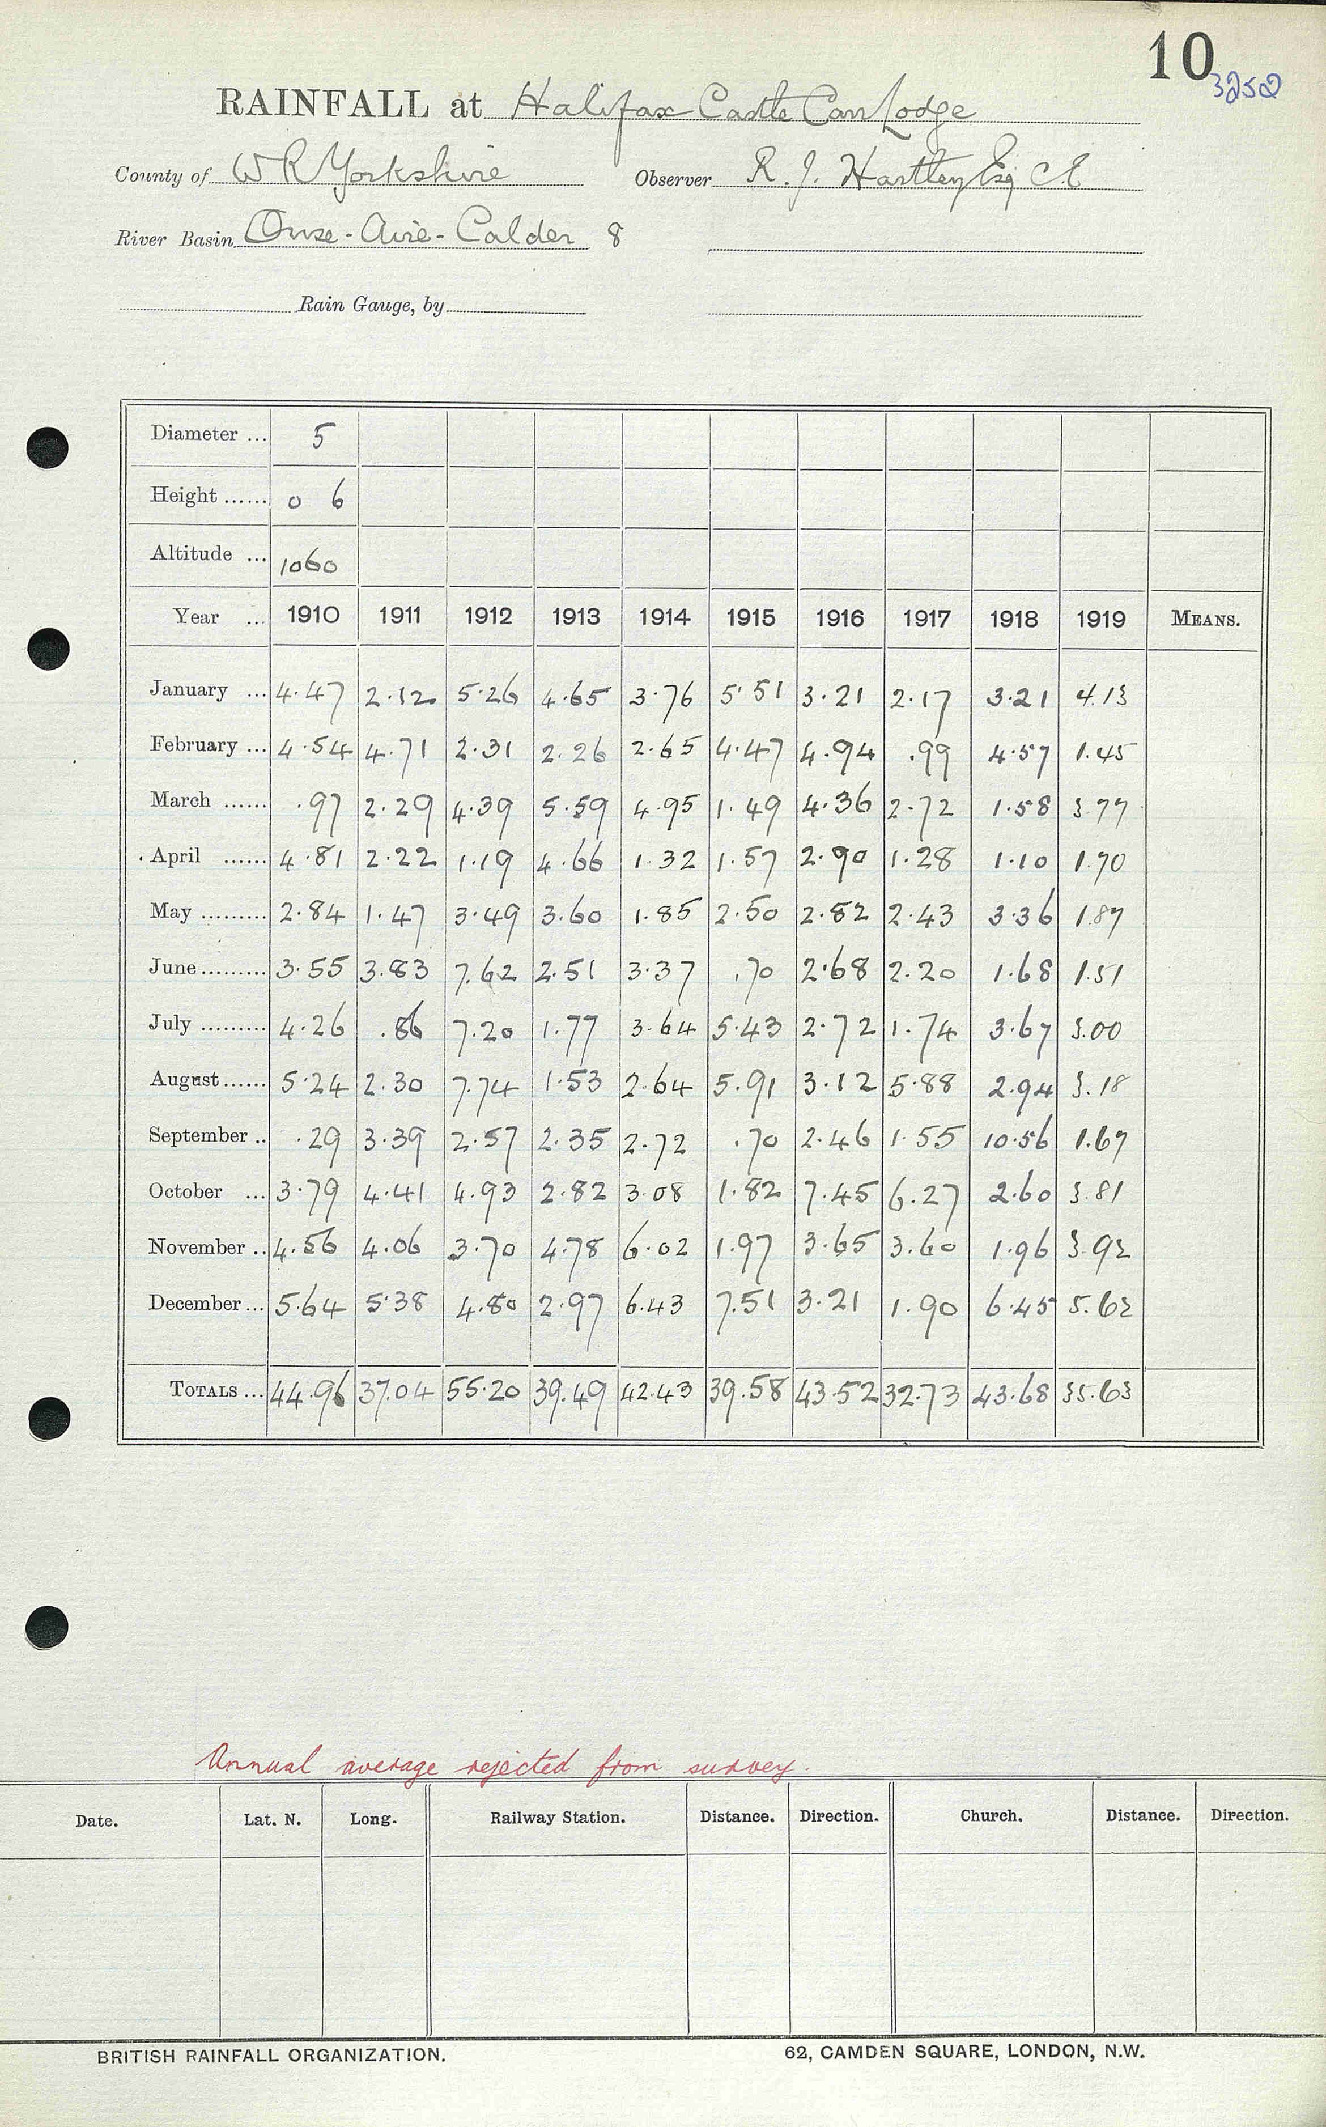 10
3252
RAINFALL at Halifax Castle Carr Lodge
County of W R Yorkshire Observer R. J. Hartley Esq C.E
River Basin Ouse-Aire-Calder 8
Rain Gauge, by
Diameter ... 5
Height ...... 0 6
Altitude ... 1060
Year ... 1910 1911 1912 1913 1914 1915 1916 1917 1918 1919 MEANS.
January ... 4.47 2.12 5.26 4.65 3.76 5.51 3.21 2.17 3.21 4.13
February ... 4.54 4.71 2.31 2.26 2.65 4.47 4.94 .99 4.57 1.45
March ...... .97 2.29 4.39 5.59 4.95 1.49 4.36 2.72 1.58 3.77
April ...... 4.81 2.22 1.19 4.66 1.32 1.57 2.90 1.28 1.10 1.70
May ......... 2.84 1.47 3.49 3.60 1.85 2.50 2.82 2.43 3.36 1.87
June ......... 3.55 3.83 7.62 2.51 3.37 .70 2.68 2.20 1.68 1.51
July ......... 4.26 .86 7.20 1.77 3.64 5.43 2.72 1.74 3.67 3.00
August ...... 5.24 2.30 7.74 1.53 2.64 5.91 3.12 5.88 2.94 3.18
September .. .29 3.39 2.57 2.35 2.72 .70 2.46 1.55 10.56 1.67
October ... 3.79 4.41 4.93 2.82 3.08 1.82 7.45 6.27 2.60 3.81
November .. 4.56 4.06 3.70 4.78 6.02 1.97 3.65 3.60 1.96 3.92
December ... 5.64 5.38 4.80 2.97 6.43 7.51 3.21 1.90 6.45 5.62
TOTALS ... 44.96 37.04 55.20 39.49 42.43 39.58 43.52 32.73 43.68 35.63
Annual average rejected from survey.
Date. Lat. N. Long. Railway Station. Distance. Direction. Church. Distance. Direction.
BRITISH RAINFALL ORGANIZATION. 62, CAMDEN SQUARE, LONDON, N.W.